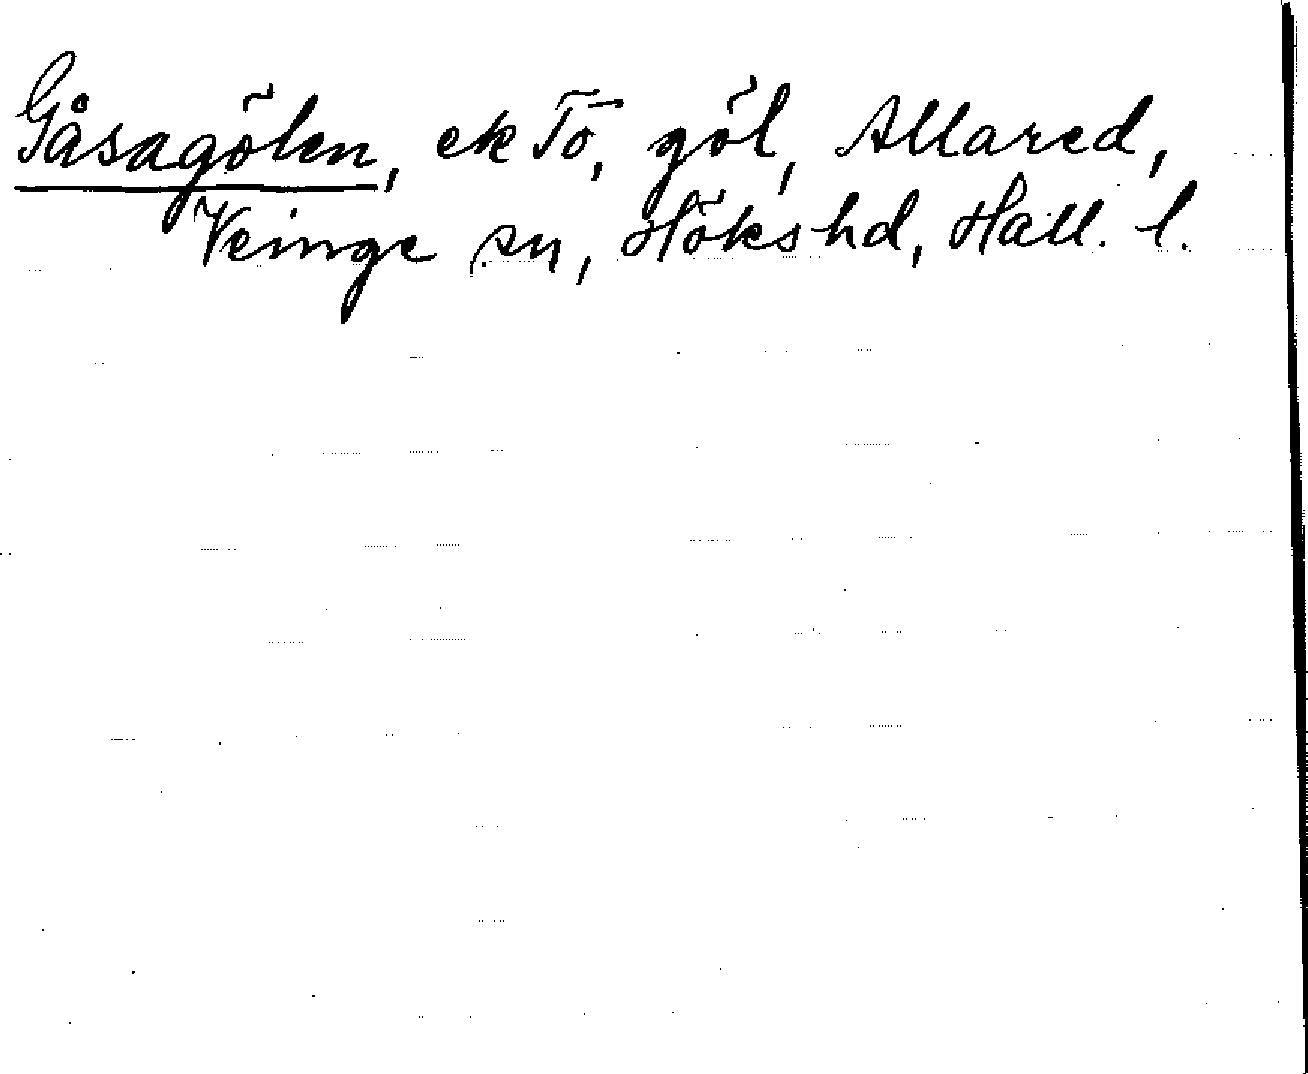 Gåsagölen, ek Tö, göl, Allared,
Veinge sn, Hökshd, Hall. l.